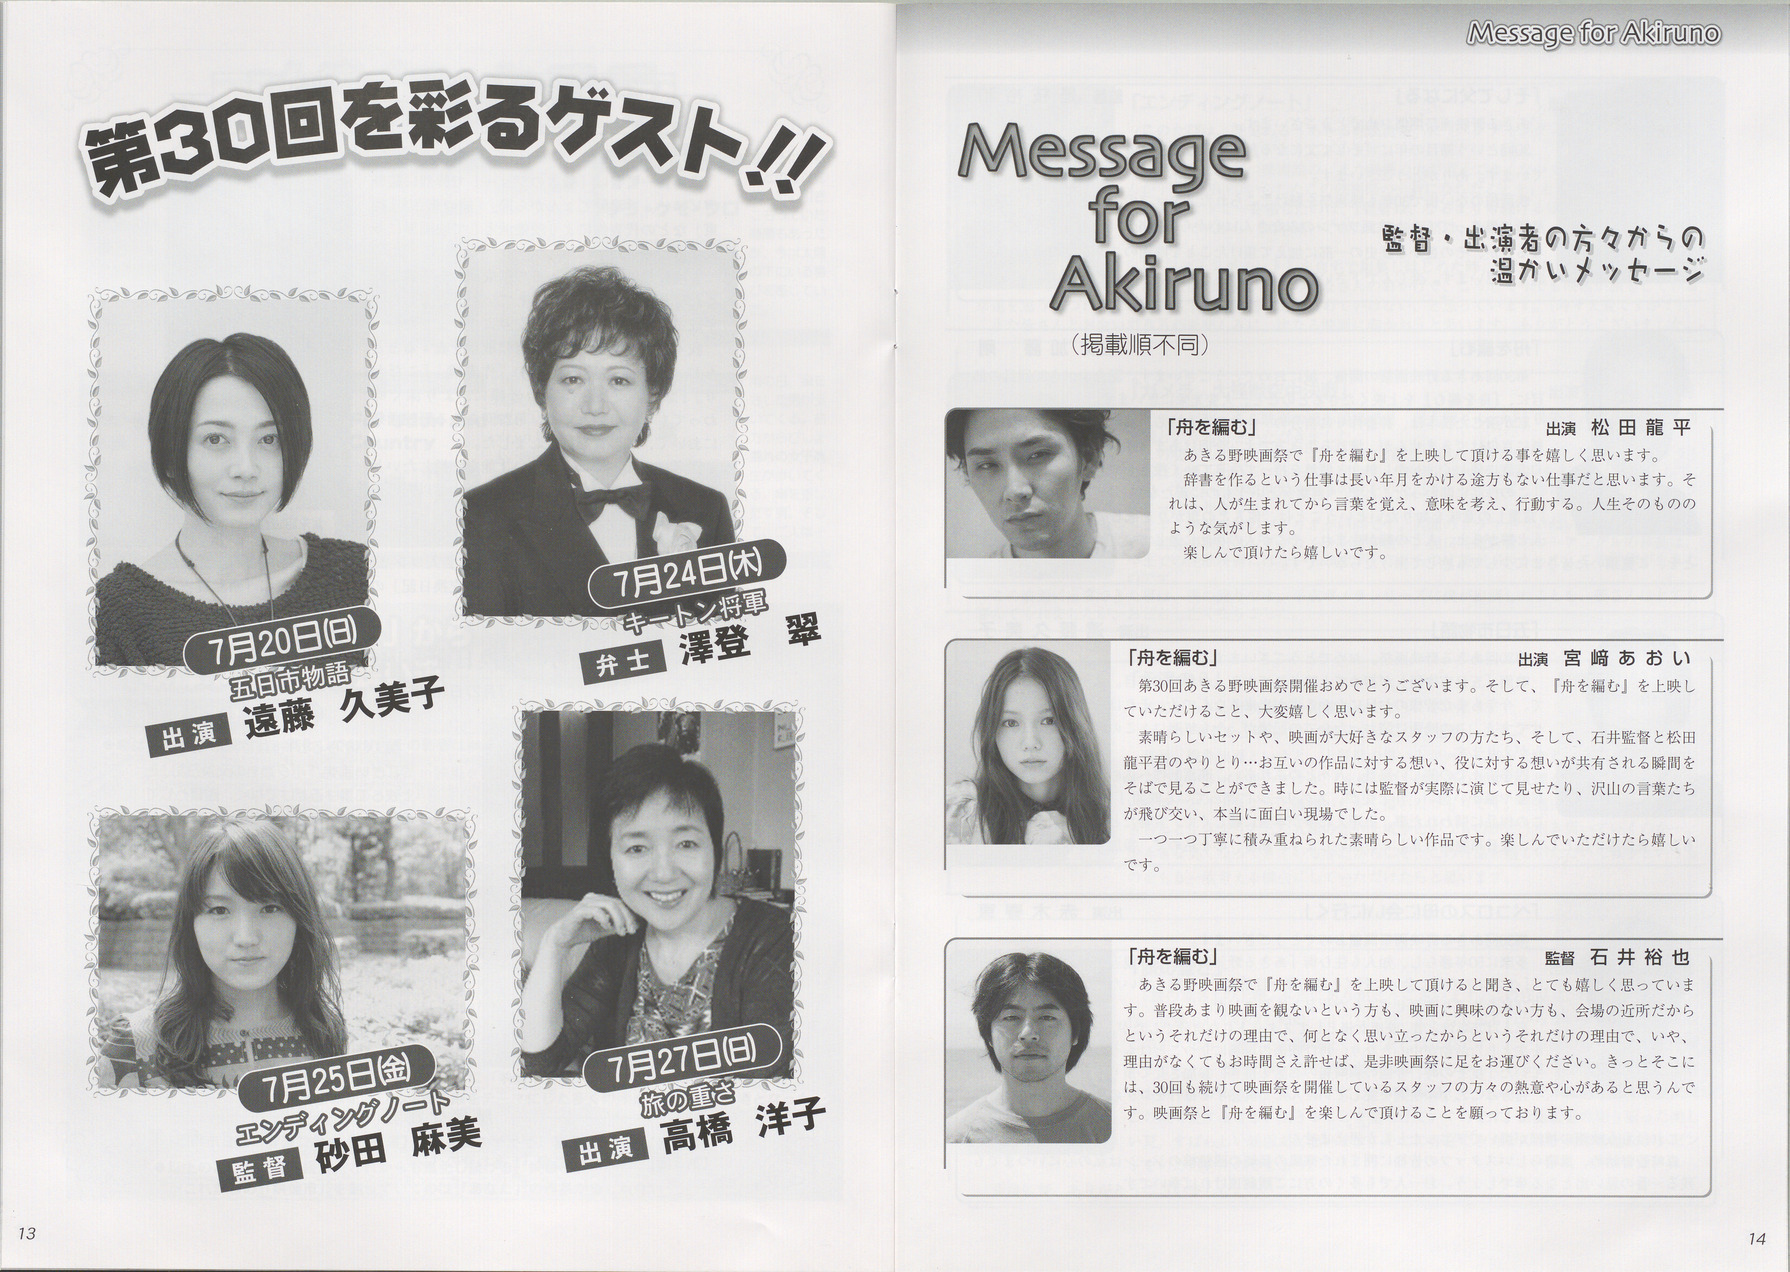 第30回を彩るゲスト!!
7月20日(日)
五日市物語
出演 遠藤 久美子
7月24日(木)
キートン将軍
弁士 澤登 翠
7月25日(金)
エンディングノート
監督 砂田 麻美
7月27日(日)
旅の重さ
出演 高橋 洋子
13
Message for Akiruno
Message
for
Akiruno
監督・出演者の方々からの
温かいメッセージ
(掲載順不同)
「舟を編む」 出演 松田龍平
あきる野映画祭で『舟を編む』を上映して頂ける事を嬉しく思います。
辞書を作るという仕事は長い年月をかける途方もない仕事だと思います。そ
れは、人が生まれてから言葉を覚え、意味を考え、行動する。人生そのものの
ような気がします。
楽しんで頂けたら嬉しいです。
「舟を編む」 出演 宮﨑あおい
第30回あきる野映画祭開催おめでとうございます。そして、『舟を編む』を上映し
ていただけること、大変嬉しく思います。
素晴らしいセットや、映画が大好きなスタッフの方たち、そして、石井監督と松田
龍平君のやりとり…お互いの作品に対する想い、役に対する想いが共有される瞬間を
そばで見ることができました。時には監督が実際に演じて見せたり、沢山の言葉たち
が飛び交い、本当に面白い現場でした。
一つ一つ丁寧に積み重ねられた素晴らしい作品です。楽しんでいただけたら嬉しい
です。
「舟を編む」 監督 石井裕也
あきる野映画祭で『舟を編む』を上映して頂けると聞き、とても嬉しく思っていま
す。普段あまり映画を観ないという方も、映画に興味のない方も、会場の近所だから
というそれだけの理由で、何となく思い立ったからというそれだけの理由で、いや、
理由がなくてもお時間さえ許せば、是非映画祭に足をお運びください。きっとそこに
は、30回も続けて映画祭を開催しているスタッフの方々の熱意や心があると思うんで
す。映画祭と『舟を編む』を楽しんで頂けることを願っております。
14